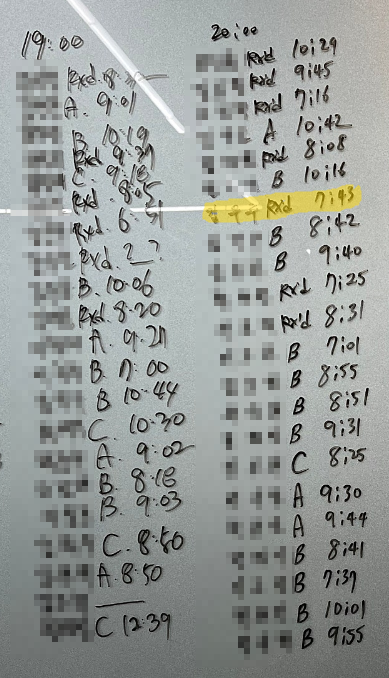 19:00
Rxd. 8:
A. 9:01
B. 10:19
Rxd 9:
C. 9:18
Rxd 8:05
Rxd. 6:51
Rxd. 2?
B. 10:06
Rxd. 8:20
A. 9:21
B 7:00
B 10:44
C. 10:30
A. 9:02
B. 8:18
B. 9:03
C. 8:50
A. 8:50
C 12:39
20:00
Rxd 10:29
Rxd 9:45
Rxd 7:16
A 10:42
Rxd 8:08
B 10:16
Rxd 7:43
B 8:42
B 9:40
Rx'd 7:25
Rx'd 8:31
B 7:01
B 8:55
B 8:51
B 9:31
C 8:25
A 9:30
A 9:44
B 8:41
B 7:37
B 10:01
B 9:55